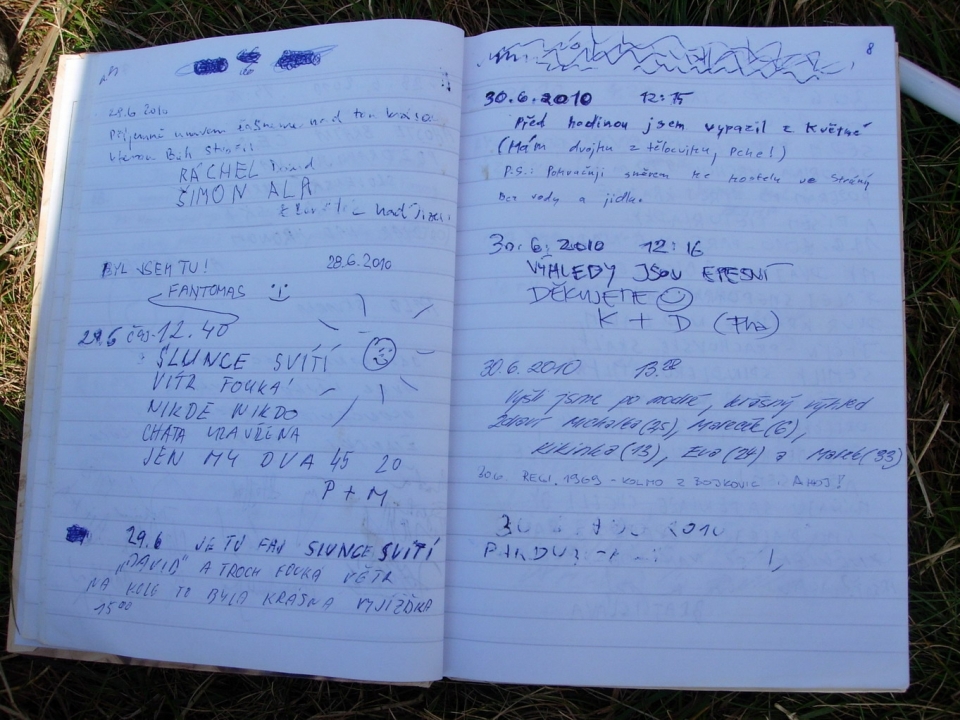 29.6 2010
Příjemně unaveni žasneme nad tou krásou
kterou Bůh stvořil
RÁCHEL
ŠIMON ALA
BYL JSEM TU! 28.6.2010
FANTOMAS
29.6 ČAS-12.40
SLUNCE SVÍTÍ
VÍTR FOUKÁ
NIKDE NIKDO
CHATA UZAVŘENA
JEN MY DVA 45 20
P + M
29.6 JE TU FAJ SLUNCE SVÍTÍ
„DAVID" A TROCH FOUKÁ VĚTR
NA KOLO TO BYLA KRÁSNÁ VYJÍŽĎKA
15⁰⁰
8
30.6.2010 12:15
Před hodinou jsem vyrazil z Květné
(Mám dvojku z tělocviku, Pche!)
P.S.: Pokračuji směrem ke kostelu ve Strážný
Bez vody a jídla.
30.6.2010 12:16
VÝHLEDY JSOU EPESNÍ
DĚKUJEME
K + D (Pha)
30.6.2010 13.
Vyšli jsme po modré, krásný výhled
Zdraví Michalka(25), Mareček(6),
Kikinka(13), Eva(24) a Marek(33)
30.6 RELI. 1969 - KOLMO Z BOJKOVIC. AHOJ!
2010